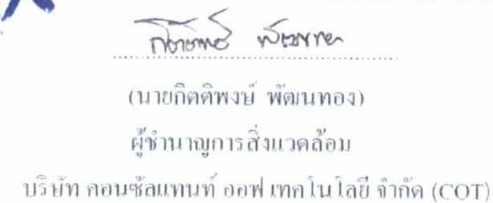 กิตติพงษ์ พัฒนทอง
(นายกิตติพงษ์ พัฒนทอง)
ผู้ชำนาญการสิ่งแวดล้อม
บริษัท คอนซัลแทนท์ ออฟ เทคโนโลยี จำกัด (COT)